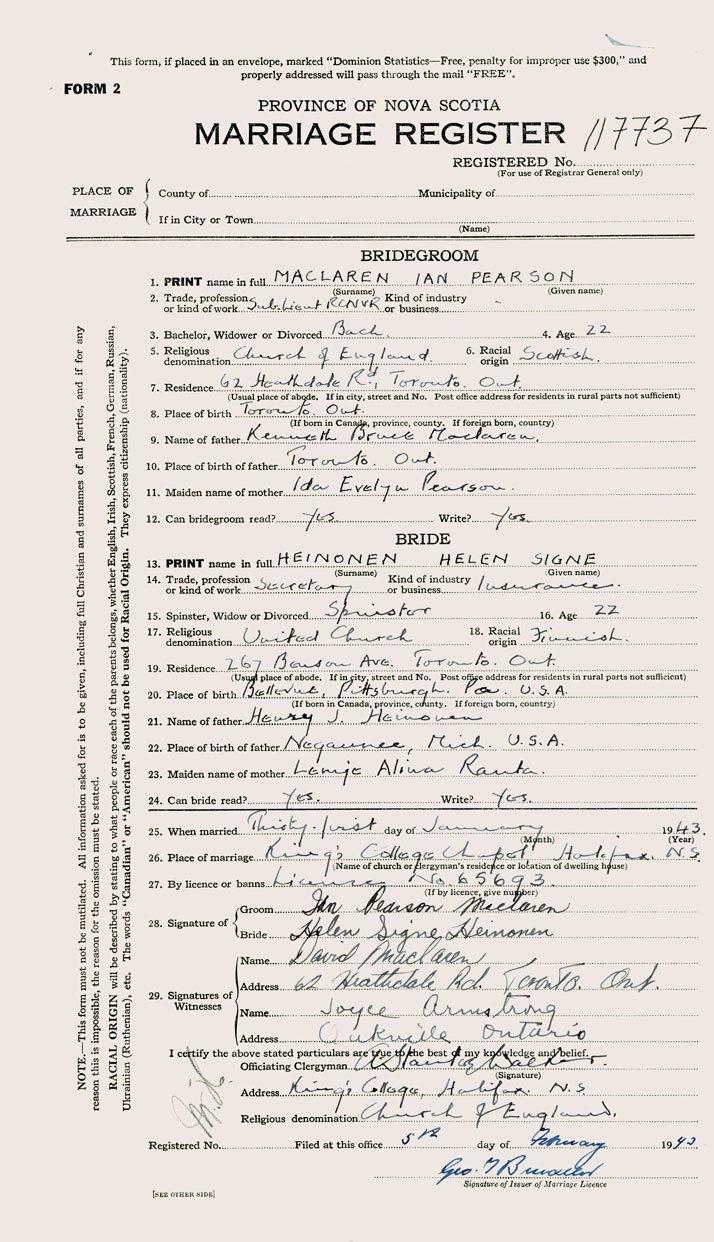 This form, if placed in an envelope, marked "Dominion Statistics—Free, penalty for improper use $300," and
properly addressed will pass through the mail "FREE".
FORM 2
PROVINCE OF NOVA SCOTIA
MARRIAGE REGISTER 117737
REGISTERED No.
(For use of Registrar General only)
PLACE OF MARRIAGE
County of Municipality of
If in City or Town
(Name)
BRIDEGROOM
1. PRINT name in full MACLAREN IAN PEARSON
(Surname) (Given name)
2. Trade, profession or kind of work Sub. Lieut RCNVR Kind of industry or business -
3. Bachelor, Widower or Divorced Bach. 4. Age 22
5. Religious denomination Church of England. 6. Racial origin Scottish.
7. Residence 62 Heathdale Rd, Toronto. Ont.
(Usual place of abode. If in city, street and No. Post office address for residents in rural parts not sufficient)
8. Place of birth Toronto. Ont.
(If born in Canada, province, county. If foreign born, country)
9. Name of father Kenneth Bruce Maclaren.
10. Place of birth of father Toronto. Ont.
11. Maiden name of mother Ida Evelyn Pearson.
12. Can bridegroom read? Yes. Write? Yes.
BRIDE
13. PRINT name in full HEINONEN HELEN SIGNE
(Surname) (Given name)
14. Trade, profession or kind of work Secretary Kind of industry or business Insurance.
15. Spinster, Widow or Divorced Spinster 16. Age 22
17. Religious denomination United Church 18. Racial origin Finnish.
19. Residence 267 Benson Ave. Toronto. Ont.
(Usual place of abode. If in city, street and No. Post office address for residents in rural parts not sufficient)
20. Place of birth Bellevue, Pittsburgh. Pa. U.S.A.
(If born in Canada, province, county. If foreign born, country)
21. Name of father Henry J. Heinonen
22. Place of birth of father Negaunee, Mich. U.S.A.
23. Maiden name of mother Alina Ranta.
24. Can bride read? Yes. Write? Yes.
25. When married Thirty-first day of January 1943.
(Month) (Year)
26. Place of marriage King's College Chapel Halifax. N.S.
(Name of church or clergyman's residence or location of dwelling house)
27. By licence or banns License No. 65693.
(If by licence, give number)
28. Signature of
Groom Ian Pearson Maclaren
Bride Helen Signe Heinonen
29. Signatures of Witnesses
Name David Maclaren
Address 62 Heathdale Rd. Toronto. Ont.
Name Joyce Armstrong
Address Oakville Ontario
I certify the above stated particulars are true to the best of my knowledge and belief.
Officiating Clergyman A Stanley Walker.
(Signature)
Address King's College, Halifax. N.S.
Religious denomination Church of England.
Registered No. Filed at this office 5th day of February 1943
Geo.
Signature of Issuer of Marriage Licence
[SEE OTHER SIDE]
NOTE.—This form must not be mutilated. All information asked for is to be given, including full Christian and surnames of all parties, and if for any
reason this is impossible, the reason for the omission must be stated.
RACIAL ORIGIN will be described by stating to what people or race each of the parents belongs, whether English, Irish, Scottish, French, German, Russian,
Ukrainian (Ruthenian), etc. The words "Canadian" or "American" should not be used for Racial Origin. They express citizenship (nationality).